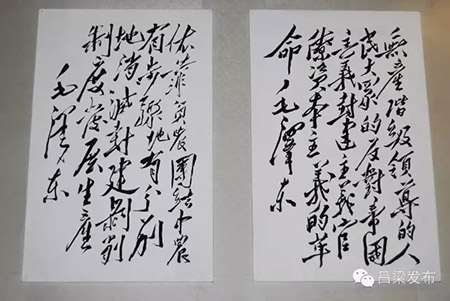 無產階級領導的人
民大眾的反對帝國
主義封建主義官
僚資本主義的革
命 毛澤東
依靠貧農團結中農
有步驟地有分別
地消滅封建剝削
制度發展生產
毛澤東
吕梁发布